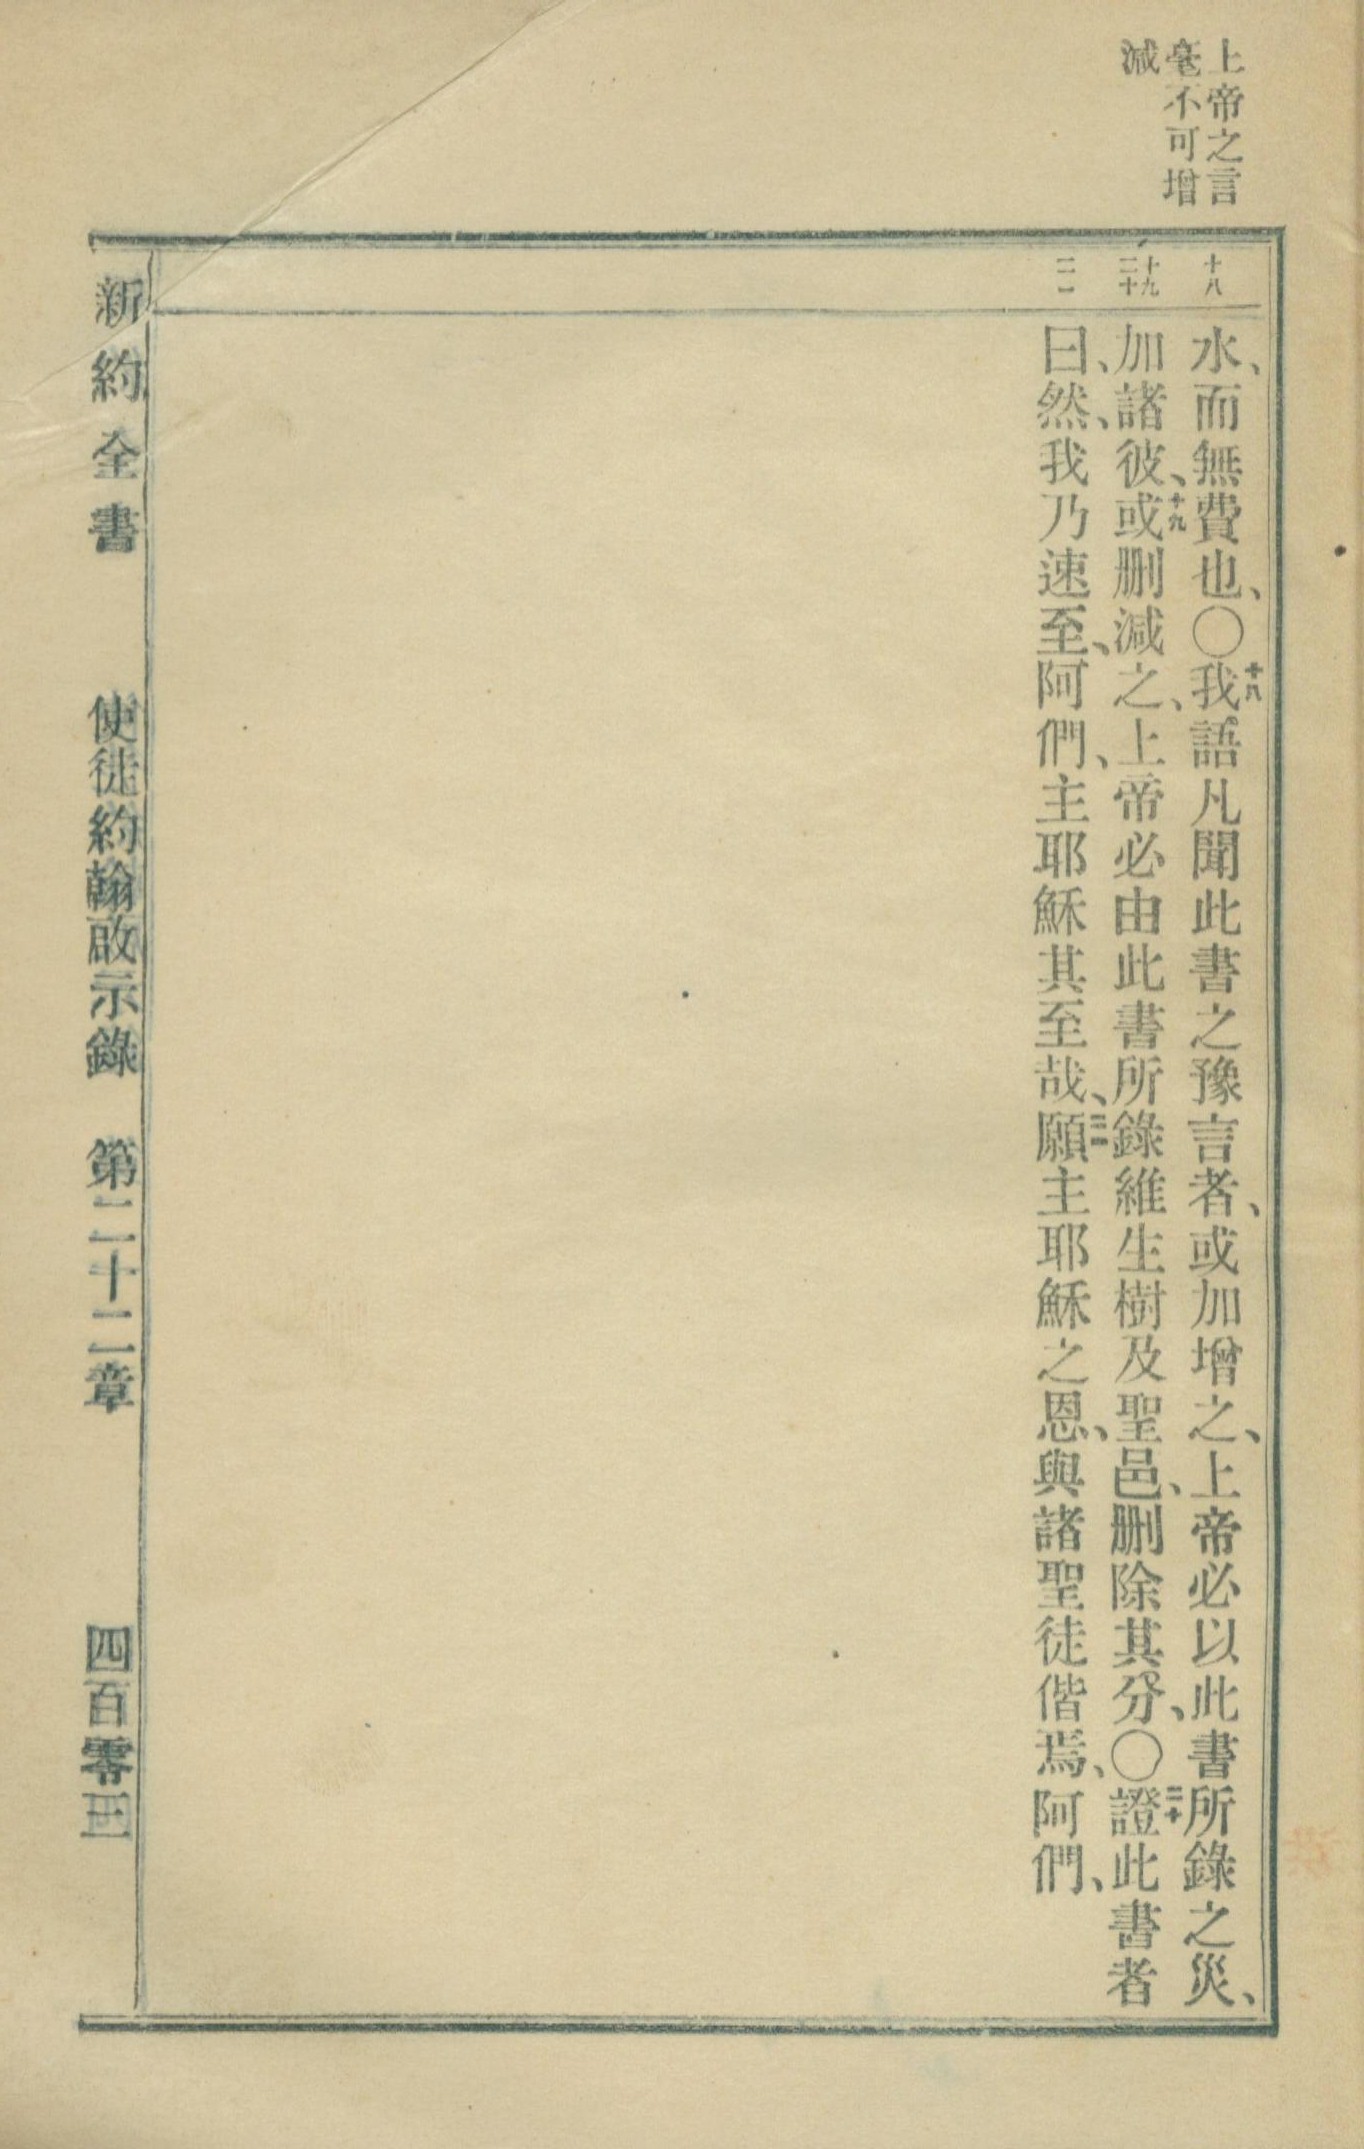 上帝之言
毫不可增
減
十八
十九
二十
二一
水、而無費也、〇十八我語凡聞此書之豫言者、或加增之、上帝必以此書所錄之災、
加諸彼、十九或删減之、上帝必由此書所錄維生樹及聖邑、删除其分、〇二十證此書者
曰、然、我乃速至、阿們、主耶穌其至哉、二一願主耶穌之恩、與諸聖徒偕焉、阿們、
新約全書 使徒約翰啟示錄 第二十二章 四百零三